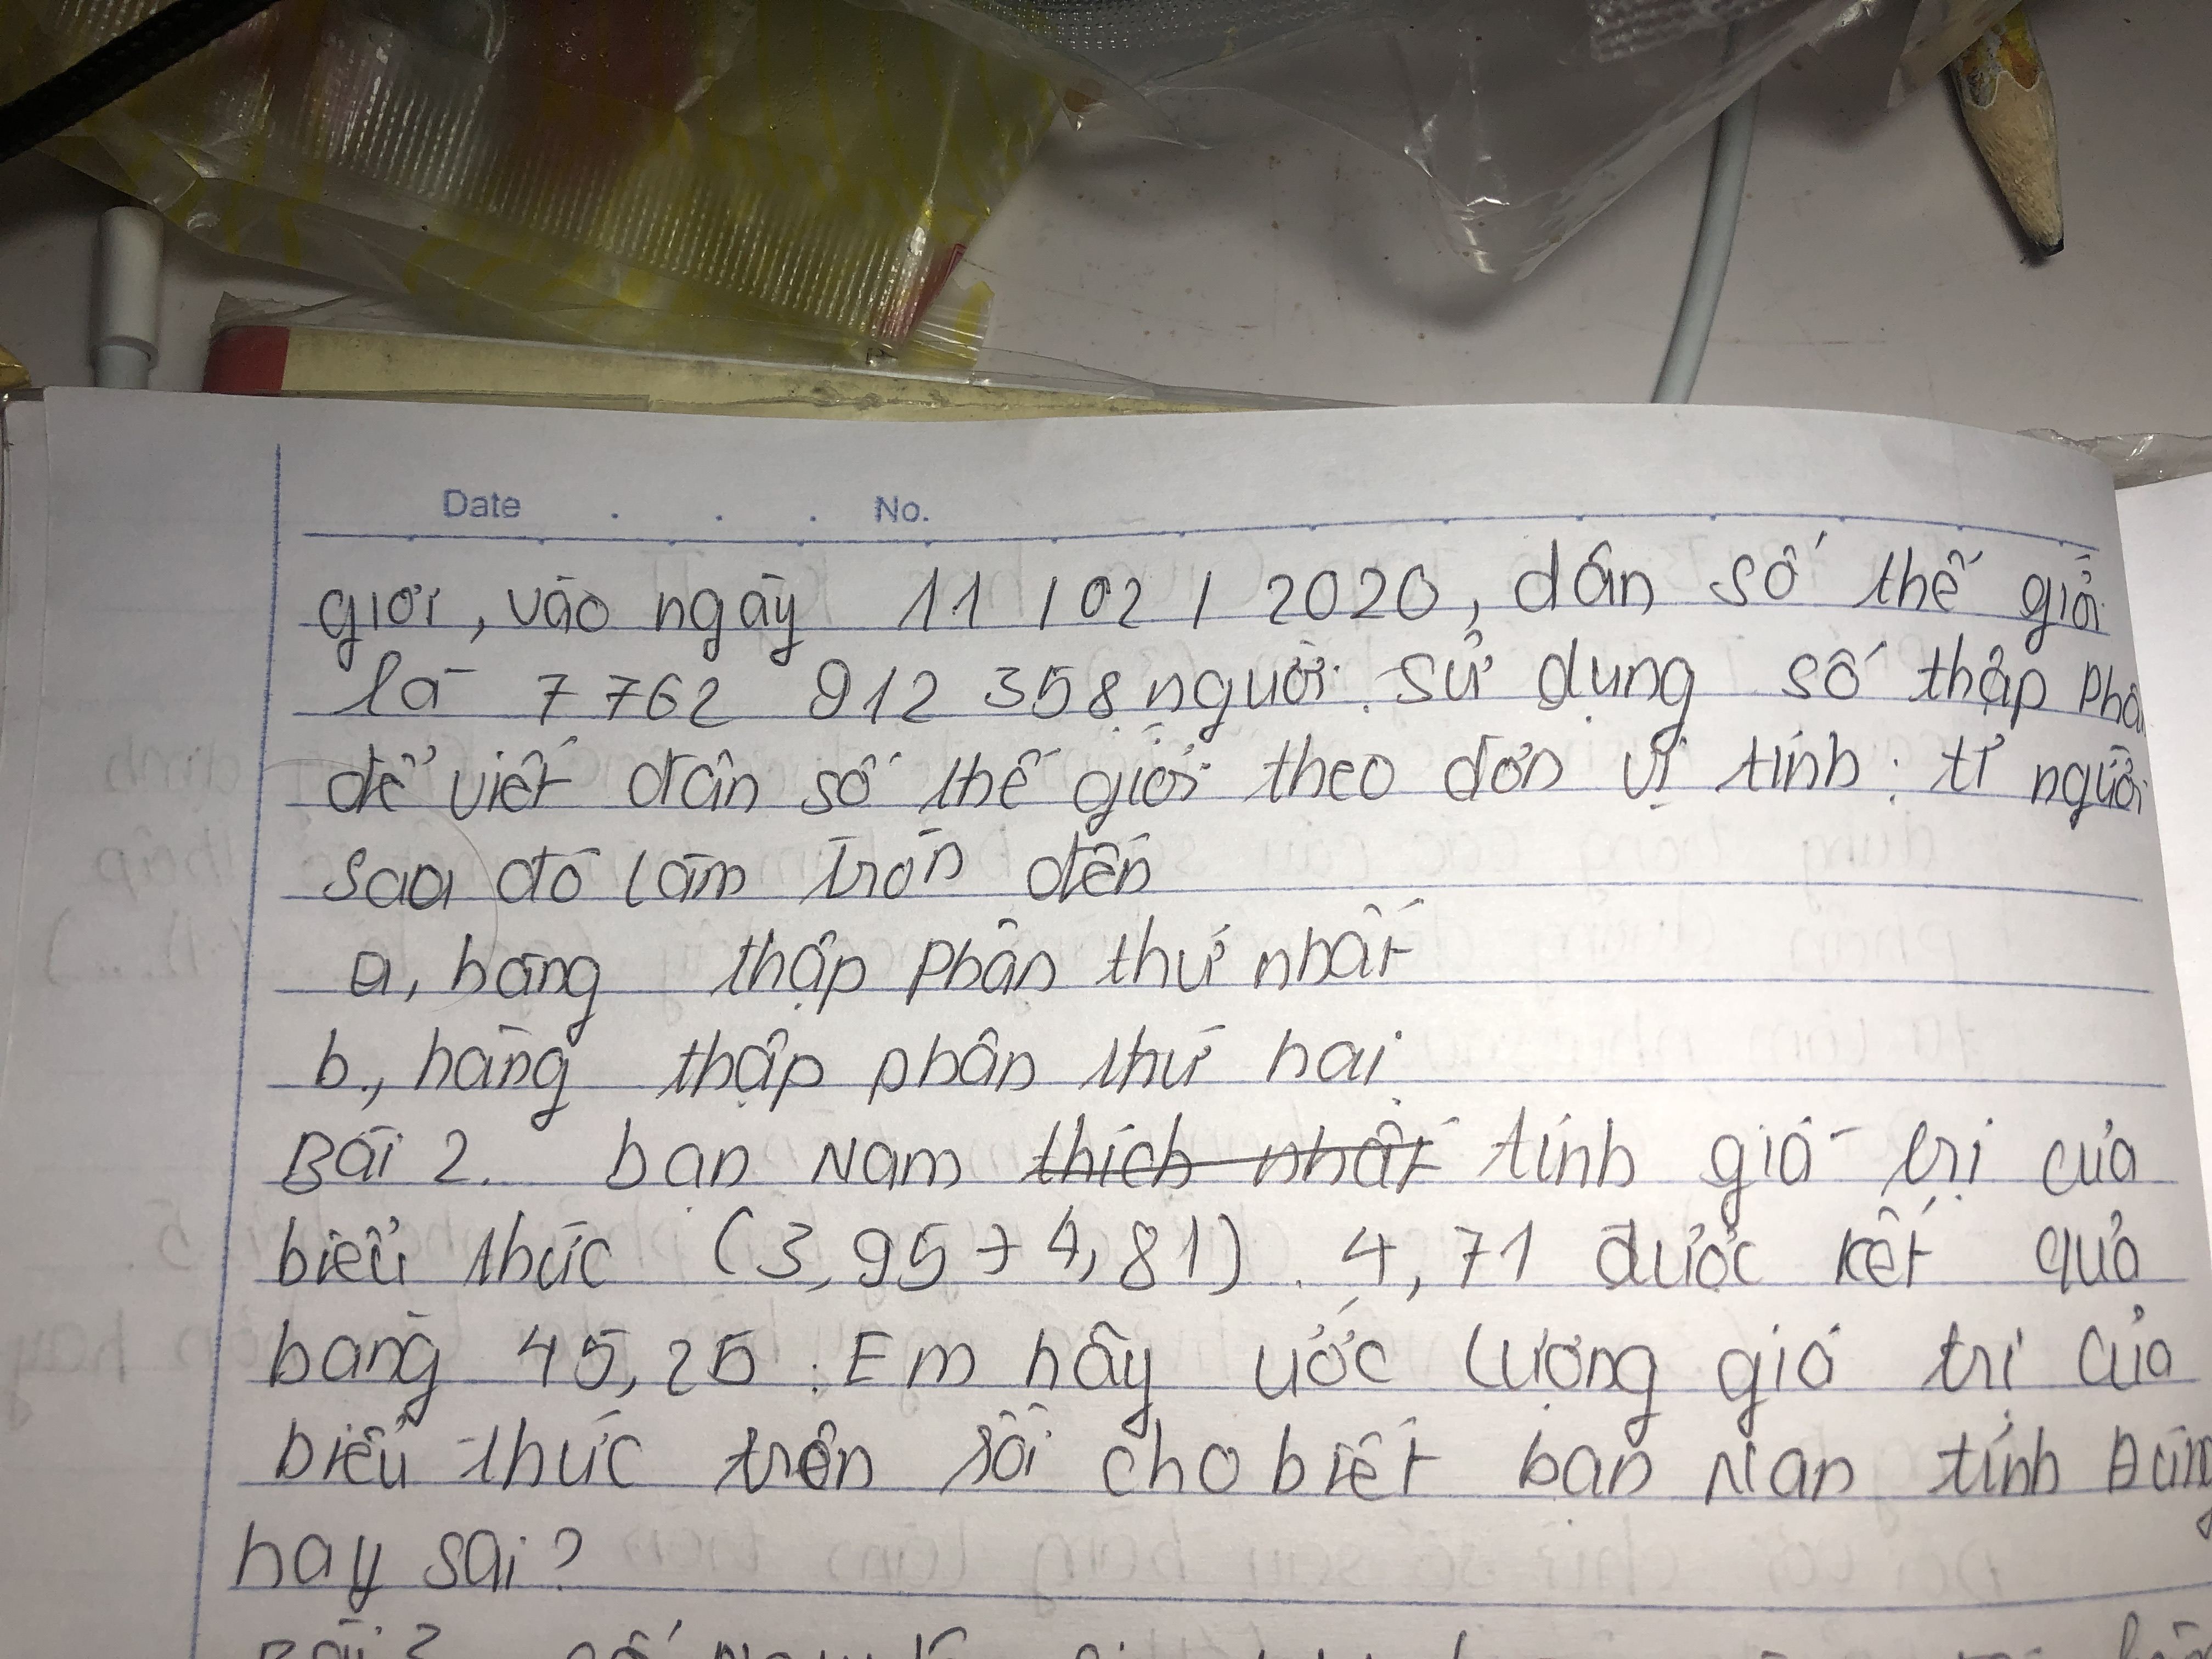 Date . . . No.
giới, vào ngày 11 / 02 / 2020, dân số thế giới
là 7 762 912 358 người. sử dụng số thập phâ
để viết dân số thế giới theo đơn vị tính: tỉ người
sau đó làm tròn đến
a, hàng thập phân thứ nhất
b., hàng thập phân thứ hai
Bài 2. bạn Nam thích nhất tính giá trị của
biểu thức (3,95 + 4,81) . 4,71 được kết quả
bằng 45,25. Em hãy ước lượng giá trị của
biểu thức trên rồi cho biết bạn Nan tính Đúng
hay sai?
Bài 3